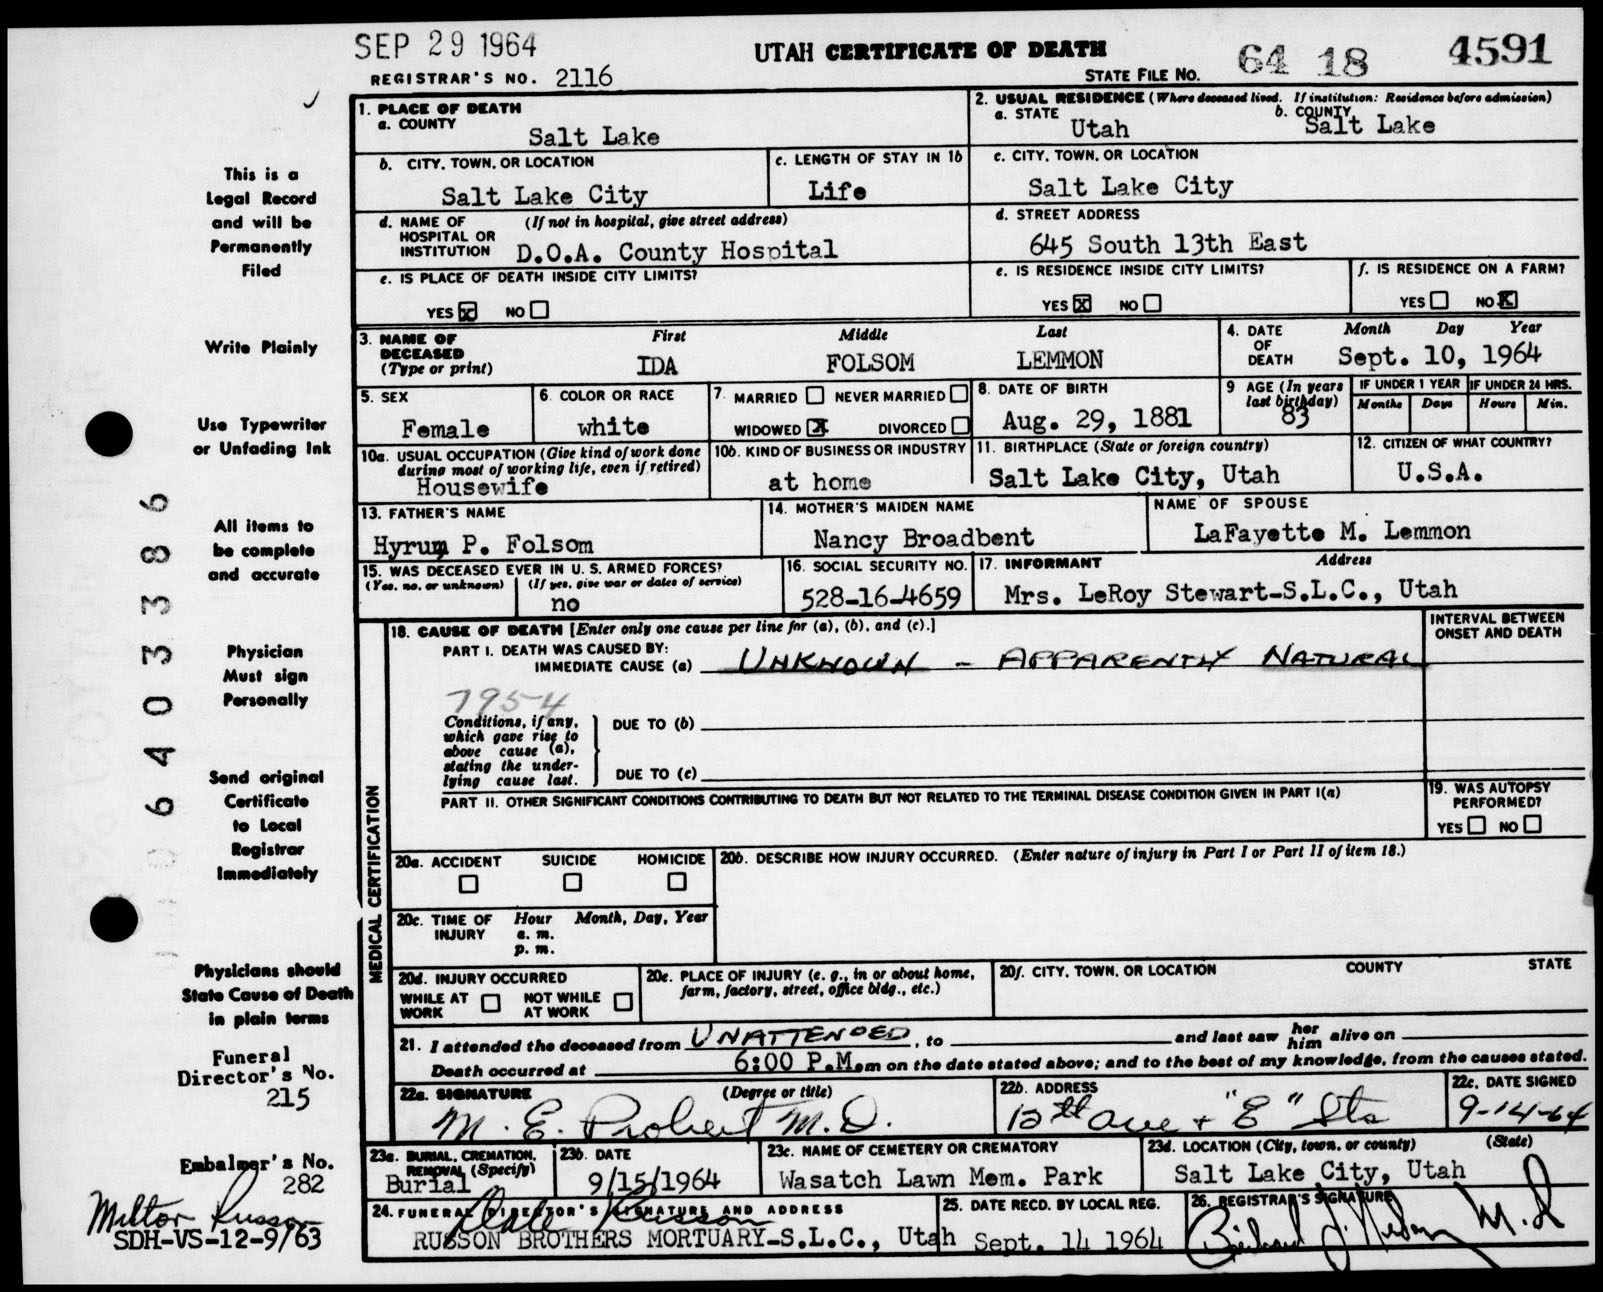 SEP 29 1964
UTAH CERTIFICATE OF DEATH
REGISTRAR'S NO. 2116
STATE FILE NO. 64 18 4591
1. PLACE OF DEATH
a. COUNTY
Salt Lake
2. USUAL RESIDENCE (Where deceased lived. If institution: Residence before admission)
a. STATE b. COUNTY
Utah Salt Lake
b. CITY, TOWN, OR LOCATION
Salt Lake City
c. LENGTH OF STAY IN 1b
Life
c. CITY, TOWN, OR LOCATION
Salt Lake City
d. NAME OF (If not in hospital, give street address)
HOSPITAL OR
INSTITUTION D.O.A. County Hospital
d. STREET ADDRESS
645 South 13th East
e. IS PLACE OF DEATH INSIDE CITY LIMITS?
YES X NO
e. IS RESIDENCE INSIDE CITY LIMITS?
YES X NO
f. IS RESIDENCE ON A FARM?
YES NO X
3. NAME OF DECEASED (Type or print)
First Middle Last
IDA FOLSOM LEMMON
4. DATE OF DEATH
Month Day Year
Sept. 10, 1964
5. SEX
Female
6. COLOR OR RACE
white
7. MARRIED NEVER MARRIED
WIDOWED X DIVORCED
8. DATE OF BIRTH
Aug. 29, 1881
9 AGE (In years
last birthday)
83
IF UNDER 1 YEAR IF UNDER 24 HRS.
Months Days Hours Min.
10a. USUAL OCCUPATION (Give kind of work done
during most of working life, even if retired)
Housewife
10b. KIND OF BUSINESS OR INDUSTRY
at home
11. BIRTHPLACE (State or foreign country)
Salt Lake City, Utah
12. CITIZEN OF WHAT COUNTRY?
U.S.A.
13. FATHER'S NAME
Hyrum P. Folsom
14. MOTHER'S MAIDEN NAME
Nancy Broadbent
NAME OF SPOUSE
LaFayette M. Lemmon
15. WAS DECEASED EVER IN U. S. ARMED FORCES?
(Yes, no, or unknown) (If yes, give war or dates of service)
no
16. SOCIAL SECURITY NO.
528-16-4659
17. INFORMANT Address
Mrs. LeRoy Stewart-S.L.C., Utah
MEDICAL CERTIFICATION
18. CAUSE OF DEATH [Enter only one cause per line for (a), (b), and (c).]
INTERVAL BETWEEN
ONSET AND DEATH
PART I. DEATH WAS CAUSED BY:
IMMEDIATE CAUSE (a) UNKNOWN - APPARENTLY NATURAL
7954
Conditions, if any,
which gave rise to
above cause (a),
stating the under-
lying cause last.
DUE TO (b)
DUE TO (c)
PART II. OTHER SIGNIFICANT CONDITIONS CONTRIBUTING TO DEATH BUT NOT RELATED TO THE TERMINAL DISEASE CONDITION GIVEN IN PART I(a)
19. WAS AUTOPSY
PERFORMED?
YES NO
20a. ACCIDENT SUICIDE HOMICIDE
20b. DESCRIBE HOW INJURY OCCURRED. (Enter nature of injury in Part I or Part II of item 18.)
20c. TIME OF INJURY Hour Month, Day, Year
a. m.
p. m.
20d. INJURY OCCURRED
WHILE AT WORK NOT WHILE AT WORK
20e. PLACE OF INJURY (e. g., in or about home,
farm, factory, street, office bldg., etc.)
20f. CITY, TOWN, OR LOCATION COUNTY STATE
21. I attended the deceased from UNATTENDED, to and last saw her him alive on
Death occurred at 6:00 P.M.m on the date stated above; and to the best of my knowledge, from the causes stated.
22a. SIGNATURE (Degree or title)
M. E. Probert M.D.
22b. ADDRESS
12th Ave + "E" Sts
22c. DATE SIGNED
9-14-64
23a. BURIAL, CREMATION,
REMOVAL (Specify)
Burial
23b. DATE
9/15/1964
23c. NAME OF CEMETERY OR CREMATORY
Wasatch Lawn Mem. Park
23d. LOCATION (City, town, or county) (State)
Salt Lake City, Utah
24. FUNERAL DIRECTOR'S SIGNATURE AND ADDRESS
Dale Russon
RUSSON BROTHERS MORTUARY-S.L.C., Utah
25. DATE RECD. BY LOCAL REG.
Sept. 14 1964
26. REGISTRAR'S SIGNATURE
M.D
This is a
Legal Record
and will be
Permanently
Filed
Write Plainly
Use Typewriter
or Unfading Ink
All items to
be complete
and accurate
Physician
Must sign
Personally
Send original
Certificate
to Local
Registrar
Immediately
Physicians should
State Cause of Death
in plain terms
Funeral
Director's No.
215
Embalmer's No.
282
Milton Russon
SDH-VS-12-9/63
06403386